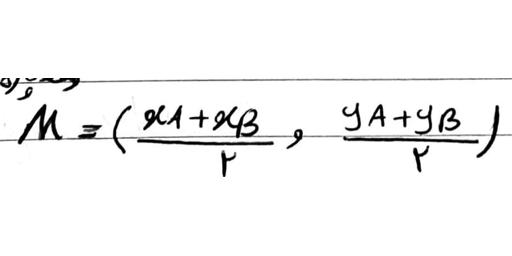 M = (xA+xB/۲ , yA+yB/۲)